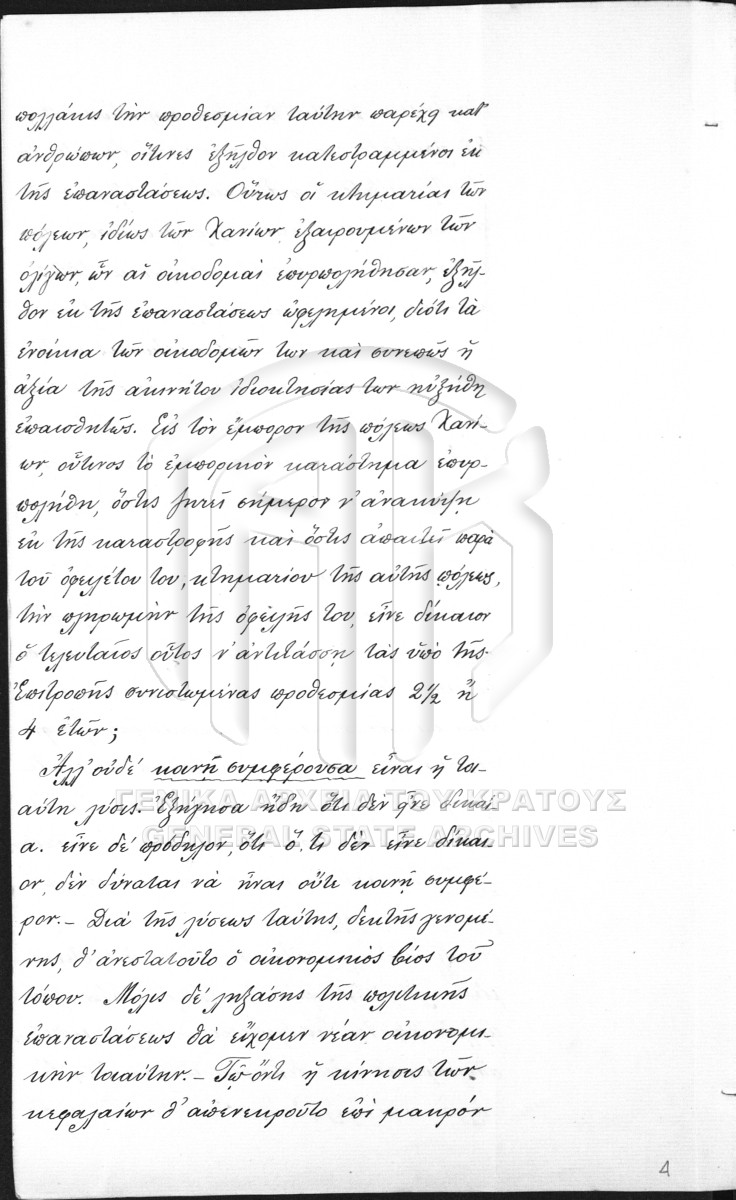 πολλάκις τὴν προθεσμίαν ταύτην παρέχῃ κατ'
ἀνθρώπων, οἵτινες ἐξῆλθον κατεστραμμένοι ἐκ
τῆς ἐπαναστάσεως. Οὕτως οἱ κτηματίαι τῶν
πόλεων, ἰδίως τῶν Χανίων, ἐξαιρουμένων τῶν
ὀλίγων, ὧν αἱ οἰκοδομαὶ ἐπυρπολήθησαν, ἐξῆλ-
θον ἐκ τῆς ἐπαναστάσεως ὠφελημένοι, διότι τὰ
ἐνοίκια τῶν οἰκοδομῶν των καὶ συνεπῶς ἡ
ἀξία τῆς ἀκινήτου ἰδιοκτησίας των ηὐξήθη
ἐπαισθητῶς. Εἰς τὸν ἔμπορον τῆς πόλεως Χανί-
ων, οὗτινος τὸ ἐμπορικὸν κατάστημα ἐπυρ-
πολήθη, ὅστις ζητεῖ σήμερον ν' ἀνακύψῃ
ἐκ τῆς καταστροφῆς καὶ ὅστις ἀπαιτεῖ παρὰ
τοῦ ὀφειλέτου του, κτηματίου τῆς αὐτῆς πόλεως,
τὴν πληρωμὴν τῆς ὀφειλῆς του, εἶνε δίκαιον
ὁ τελευταῖος οὗτος ν' ἀντιτάσσῃ τὰς ὑπὸ τῆς
Ἐπιτροπῆς συνιστωμένας προθεσμίας 2½ ἢ
4 ἐτῶν;
Ἀλλ' οὐδὲ κοινῇ συμφέρουσα εἶναι ἡ τοι-
αύτη λύσις. Ἐξήγησα ἤδη ὅτι δὲν εἶνε δικαί-
α. εἶνε δὲ πρόδηλον, ὅτι ὅ,τι δὲν εἶνε δίκαι-
ον, δὲν δύναται νὰ ᾖναι οὔτε κοινῇ συμφέ-
ρον. – Διὰ τῆς λύσεως ταύτης, δεκτῆς γενομέ-
νης, θ' ἀνεστατοῦτο ὁ οἰκονομικὸς βίος τοῦ
τόπου. Μόλις δὲ ληξάσης τῆς πολιτικῆς
ἐπαναστάσεως θὰ εἴχομεν νέαν οἰκονομι-
κὴν τοιαύτην. – Τῷ ὄντι ἡ κίνησις τῶν
κεφαλαίων θ' ἀπενεκροῦτο ἐπὶ μακρόν
4
ΓΕΝΙΚΑ ΑΡΧΕΙΑ ΤΟΥ ΚΡΑΤΟΥΣ
GENERAL STATE ARCHIVES